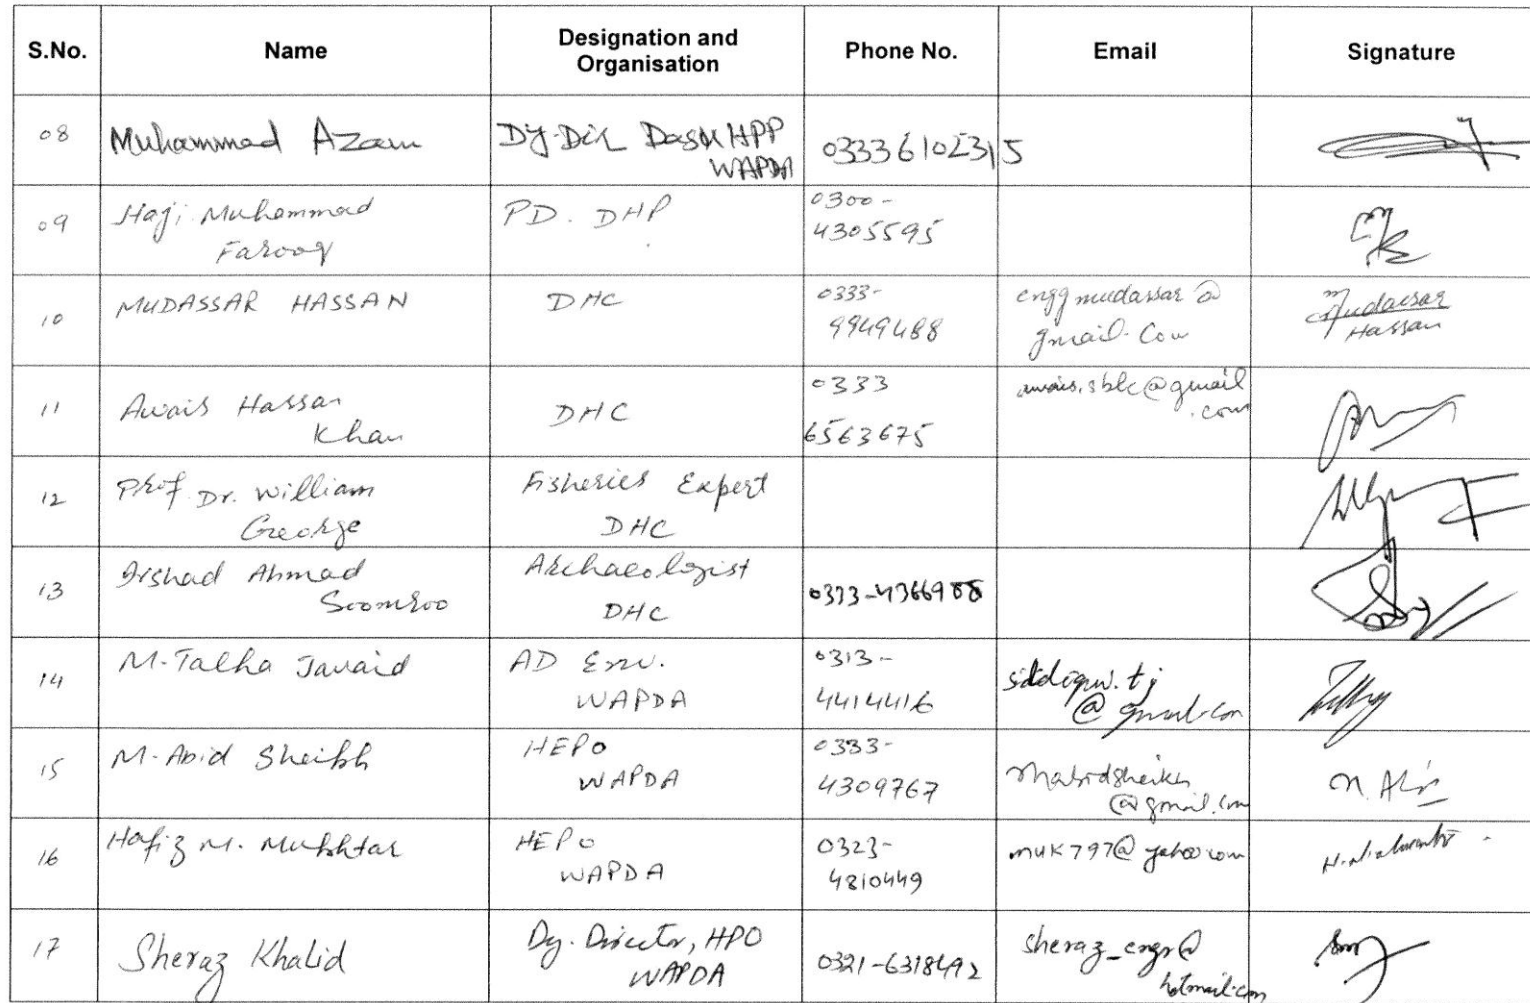 S.No. Name Designation and Organisation Phone No. Email Signature
08 Muhammad Azam Dy-Dir Dasu HPP WAPDA 03336102315
09 Haji Muhammad Farooq PD. DHP 0300-4305595
10 MUDASSAR HASSAN DHC 0333-9949488 enggmudassar@gmail.com Mudassar Hassan
11 Awais Hassan Khan DHC 0333 6563675 awais.sblc@gmail.com
12 Prof Dr. William George Fisheries Expert DHC
13 Irshad Ahmad Soomroo Archaeologist DHC
14 M. Talha Javaid AD Env. WAPDA 0313-4414416
15 M. Abid Sheikh HEPO WAPDA 0333-4309767
16 Hafiz M. Mukhtar HEPO WAPDA 0323-4810449 muk797@yahoo.com
17 Sheraz Khalid Dy. Director, HPO WAPDA 0321-6318492 sheraz_engr@hotmail.com